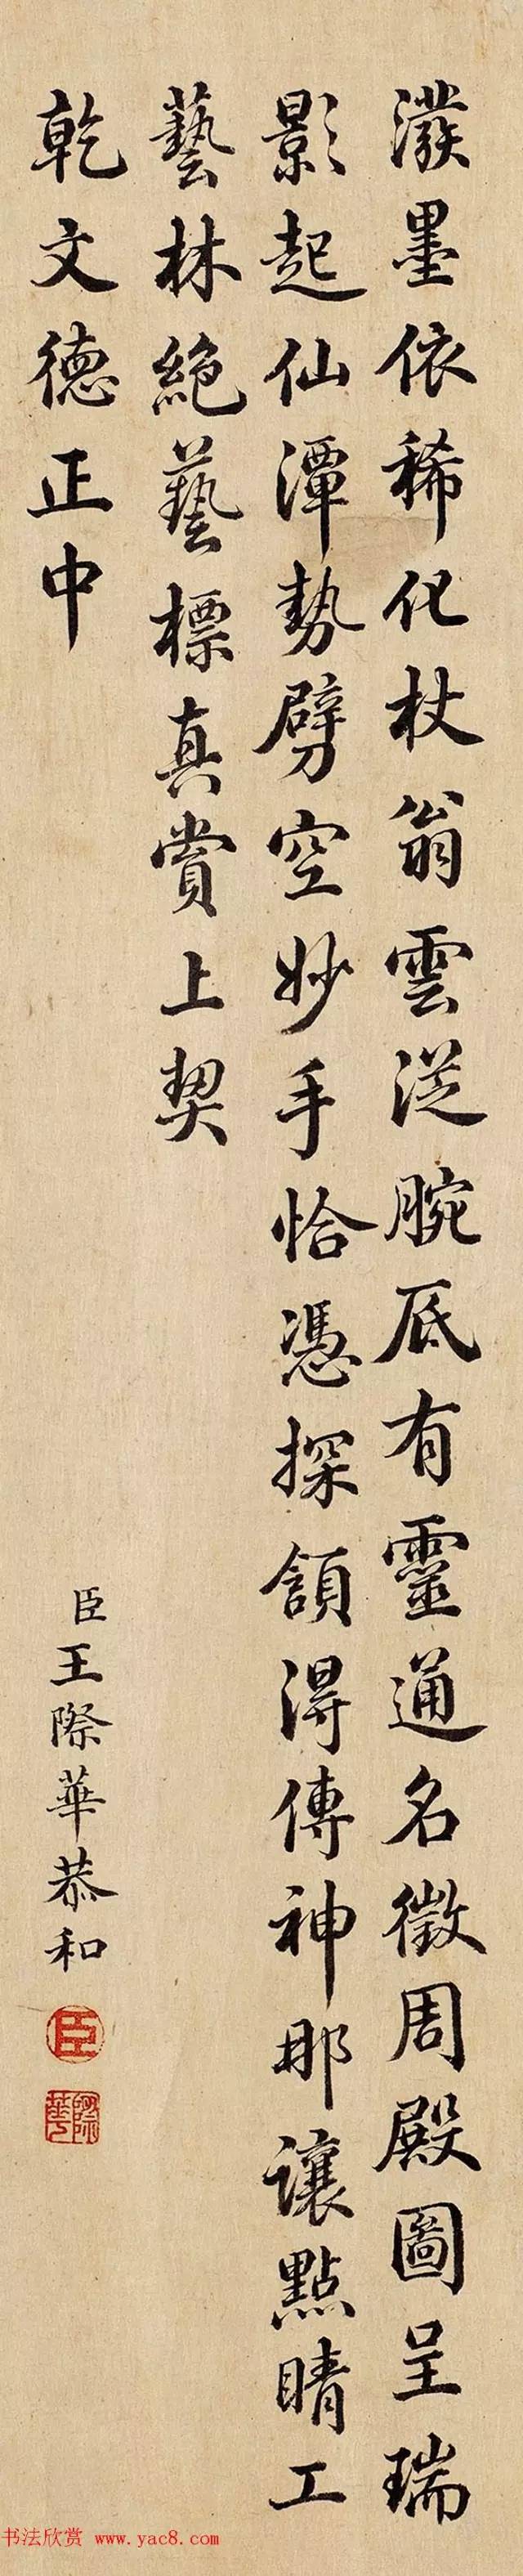 潑墨依稀化杖翁雲従腕底有靈通名徵周殿圖呈瑞
影起仙潭勢劈空妙手恰憑探頷得傳神那讓點睛工
藝林絕藝標真賞上契
乾文德正中
臣王際華恭和
臣
際華
书法欣赏 www.yac8.com